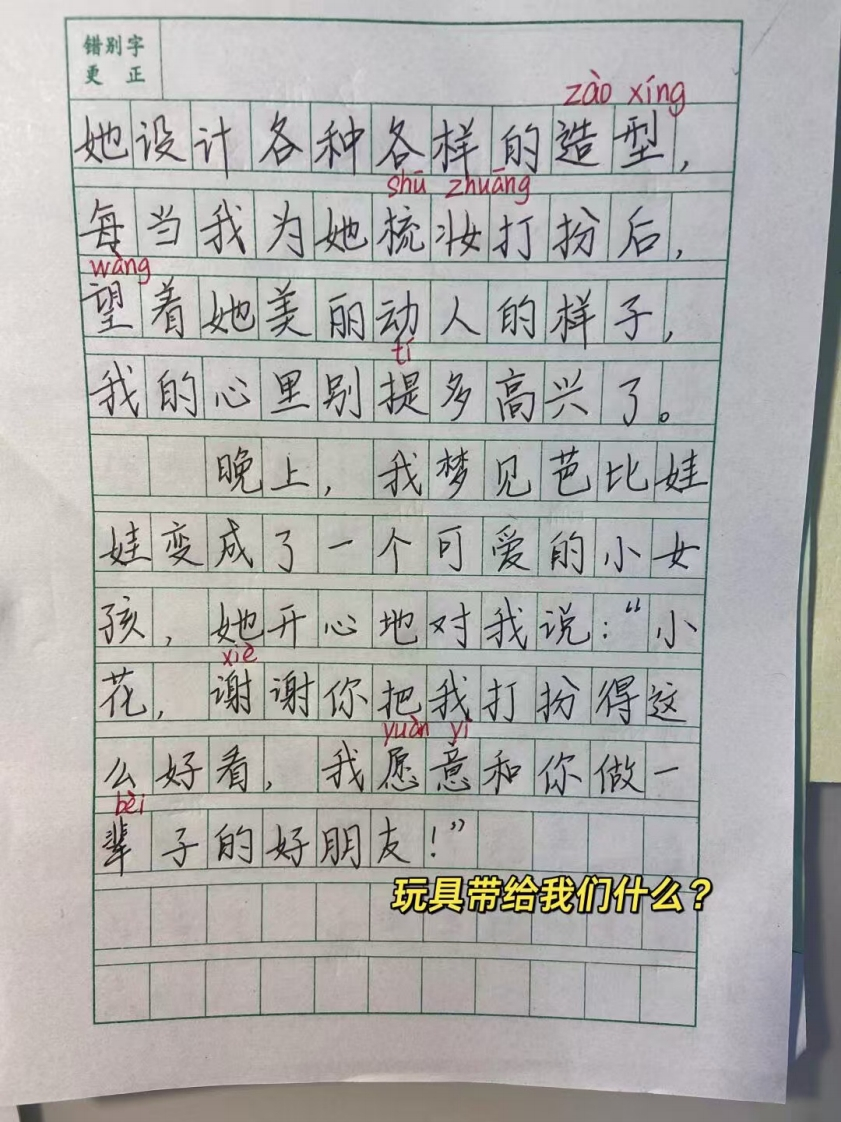 错别字
更 正
zào xíng
她设计各种各样的造型，
shū zhuāng
每当我为她梳妆打扮后，
wàng
望着她美丽动人的样子，
tí
我的心里别提多高兴了。
晚上，我梦见芭比娃
娃变成了一个可爱的小女
孩，她开心地对我说：“小
xiè
花，谢谢你把我打扮得这
yuàn yì
么好看，我愿意和你做一
bèi
辈子的好朋友！”
玩具带给我们什么？